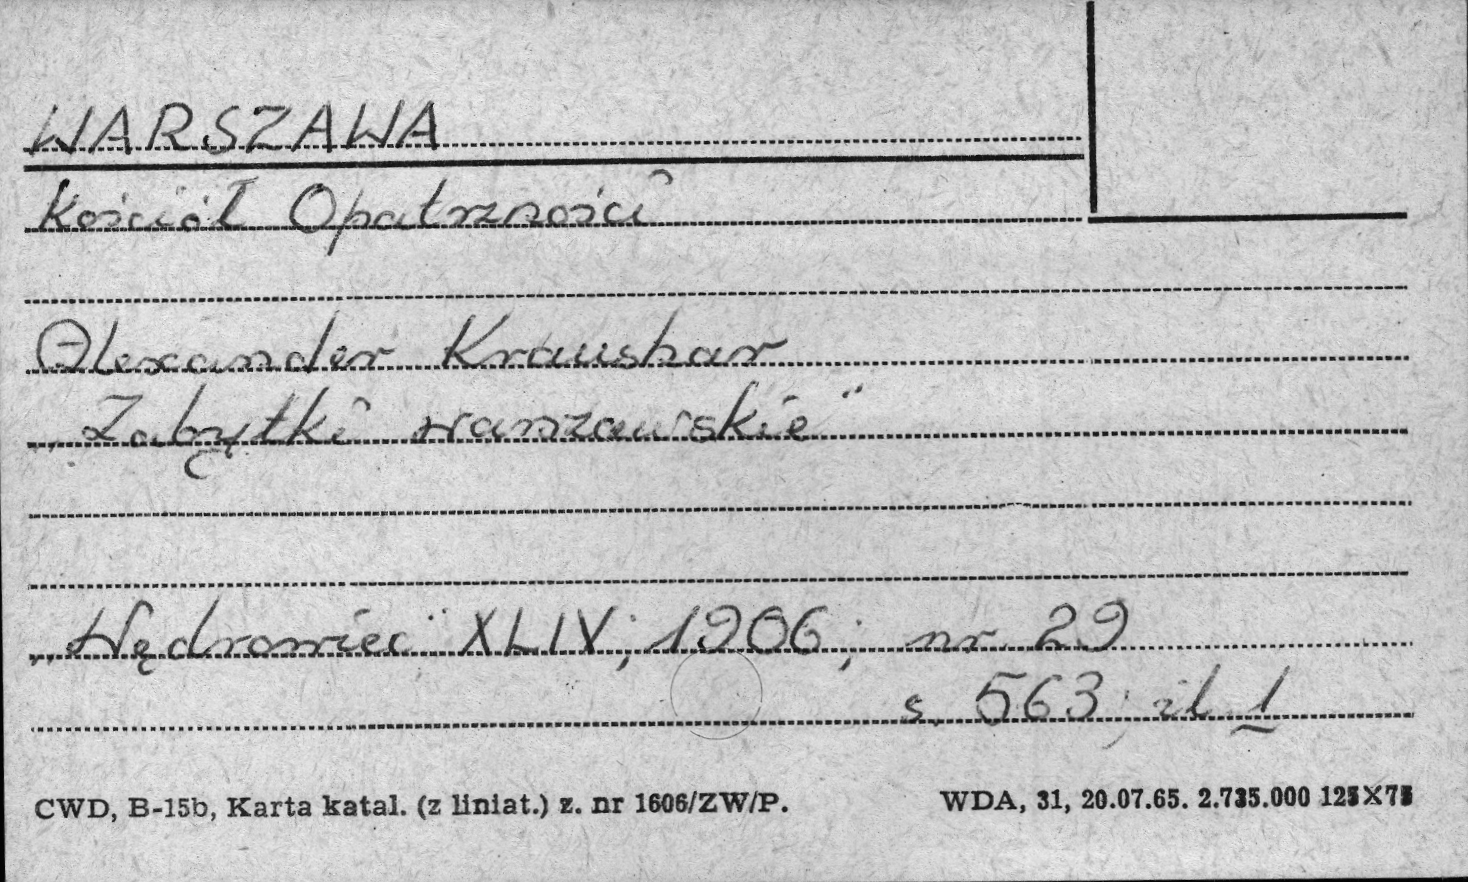 WARSZAWA
Kościół Opatrzności
Alexander Kraushar
„Zabytki warszawskie"
„Wędrowiec" XLIV; 1906; nr. 29
s. 563; il 1
CWD, B-15b, Karta katal. (z liniat.) z. nr 1606/ZW/P.
WDA, 31, 20.07.65. 2.735.000 125×75